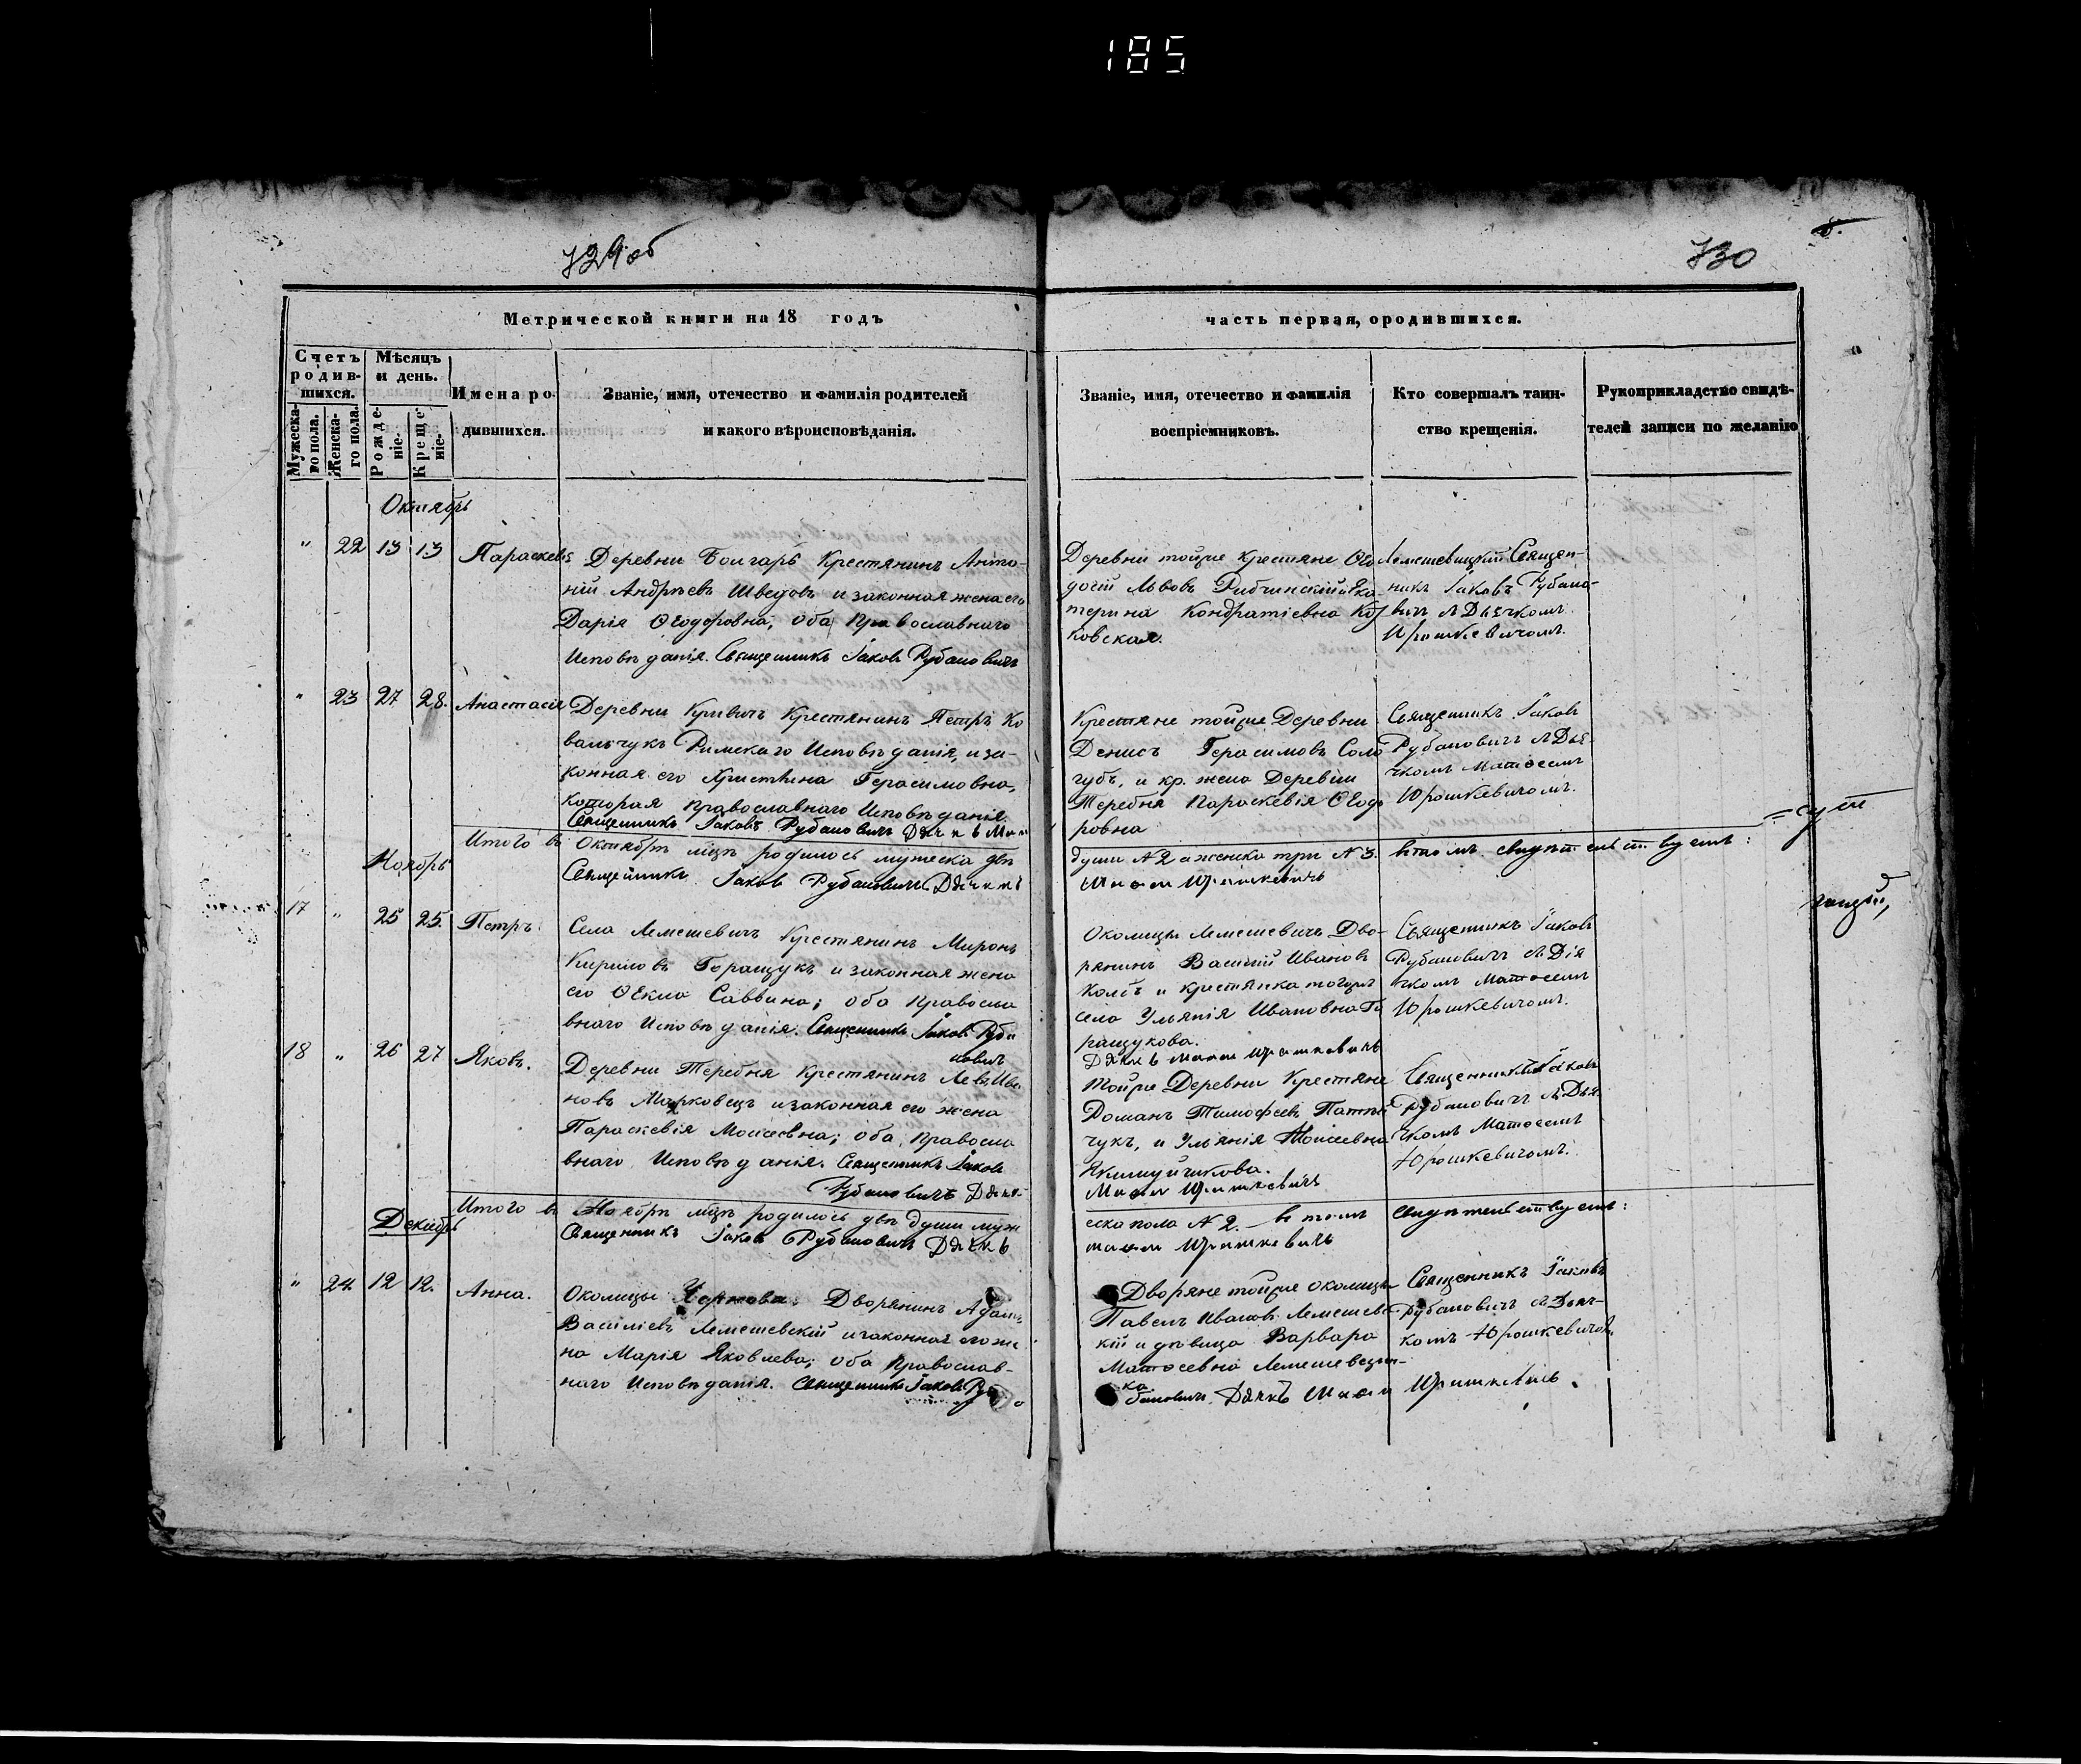 185
729об
730
Метрической книги на 18 годъ
часть первая, ородившихся.
Счетъ родив-
шихся.
Мужеска-
го пола.
Женска-
го пола.
Мѣсяцъ
и день.
Рожде-
ніе.
Креще-
ніе.
Имена ро-
дившихся.
Званіе, имя, отечество и фамилія родителей
и какого вѣроисповѣданія.
Званіе, имя, отечество и фамилія
воспріемниковъ.
Кто совершалъ таин-
ство крещенія.
Рукоприкладство свидѣ-
телей записи по желанію
Октябрь
" 22 13 13 Параскевія
Деревни Боигаръ Крестянинъ Анто-
ній Андрѣевъ Шведовъ и законная жена его
Дарія Ѳеодоровна, оба Православнаго
Исповѣданія. Священникъ Іаковъ Рубановичъ
Деревни тойже крестяне Ѳео
досій Львовъ и Ека-
терина Кондратіевна Коз
ковская.
Лемешевицкій Священ-
никъ Іаковъ Рубано-
вичъ съ Дьячкомъ
Юрошкевичомъ.
" 23 27 28. Анастасія
Деревни Кривичъ Крестянинъ Петръ Ко
вальчукъ Римскаго Исповѣданія, и за-
конная его Христина Герасимовна,
которая православнаго Исповѣданія.
Священникъ Іаковъ Рубановичъ Дячкъ
Крестяне тойже Деревни
Денисъ Герасимовъ Соло
губъ, и кр. жена Деревни
Теребня Параскевія Ѳеодо
ровна
Священникъ Іаковъ
Рубановичъ съ Дья-
чкомъ Матѳеемъ
Юрошкевичомъ.
Итого въ Октябрѣ мцѣ родилось мужеска двѣ
души № 2 а женска три № 3. въ томъ свидѣтельствуемъ:
Священникъ Іаковъ Рубановичъ Дячкъ
Ноябрь
17 " 25 25. Петръ.
Села Лемешевичъ Крестянинъ Миронъ
Кириловъ Горащукъ и законная жена
его Ѳекла Саввина; оба Правосла
внаго Исповѣданія. Священникъ Іаковъ Руба
новичъ
Околицы Лемешевичъ Дво-
рянинъ Василій Ивановъ
Колбъ и крестянка тогожъ
села Уліянія Ивановна Го
ращукова.
Священникъ Іаковъ
Рубановичъ съ Дія
чкомъ Матѳеемъ
Юрошкевичомъ.
18 " 26 27 Яковъ.
Деревни Теребня Крестянинъ Левъ Ива
новъ Марковецъ и законная его жена
Параскевія Моисеевна; оба Правосла
внаго Исповѣданія. Священникъ Іаковъ
Рубановичъ Дячк
Тойже Деревни Крестяне
Доманъ Тимофеевъ
чукъ, и Уліянія Моисеевна
Священникъ Іаковъ
Рубановичъ съ Дья
чкомъ Матѳеемъ
Юрошкевичомъ.
Итого въ Ноябрѣ мцѣ родилось двѣ души муж
еска пола № 2. въ томъ свидѣтельствуемъ:
Священникъ Іаковъ Рубановичъ Дячкъ
Декабрь
" 24. 12 12. Анна.
Околицы Чернова. Дворянинъ Адамъ
Василіевъ Лемешевскій и законная его же
на Марія Яковлева; оба Православ-
наго Исповѣданія. Священникъ Іаковъ Ру
Дворяне тойже околицы
Павелъ Ивановъ Лемешевс
кій и дѣвица Варвара
Матѳеевна Лемешевск
ка
бановичъ. Дячкъ
Священникъ Іаковъ
Рубановичъ съ Дьяч-
комъ Юрошкевичомъ.